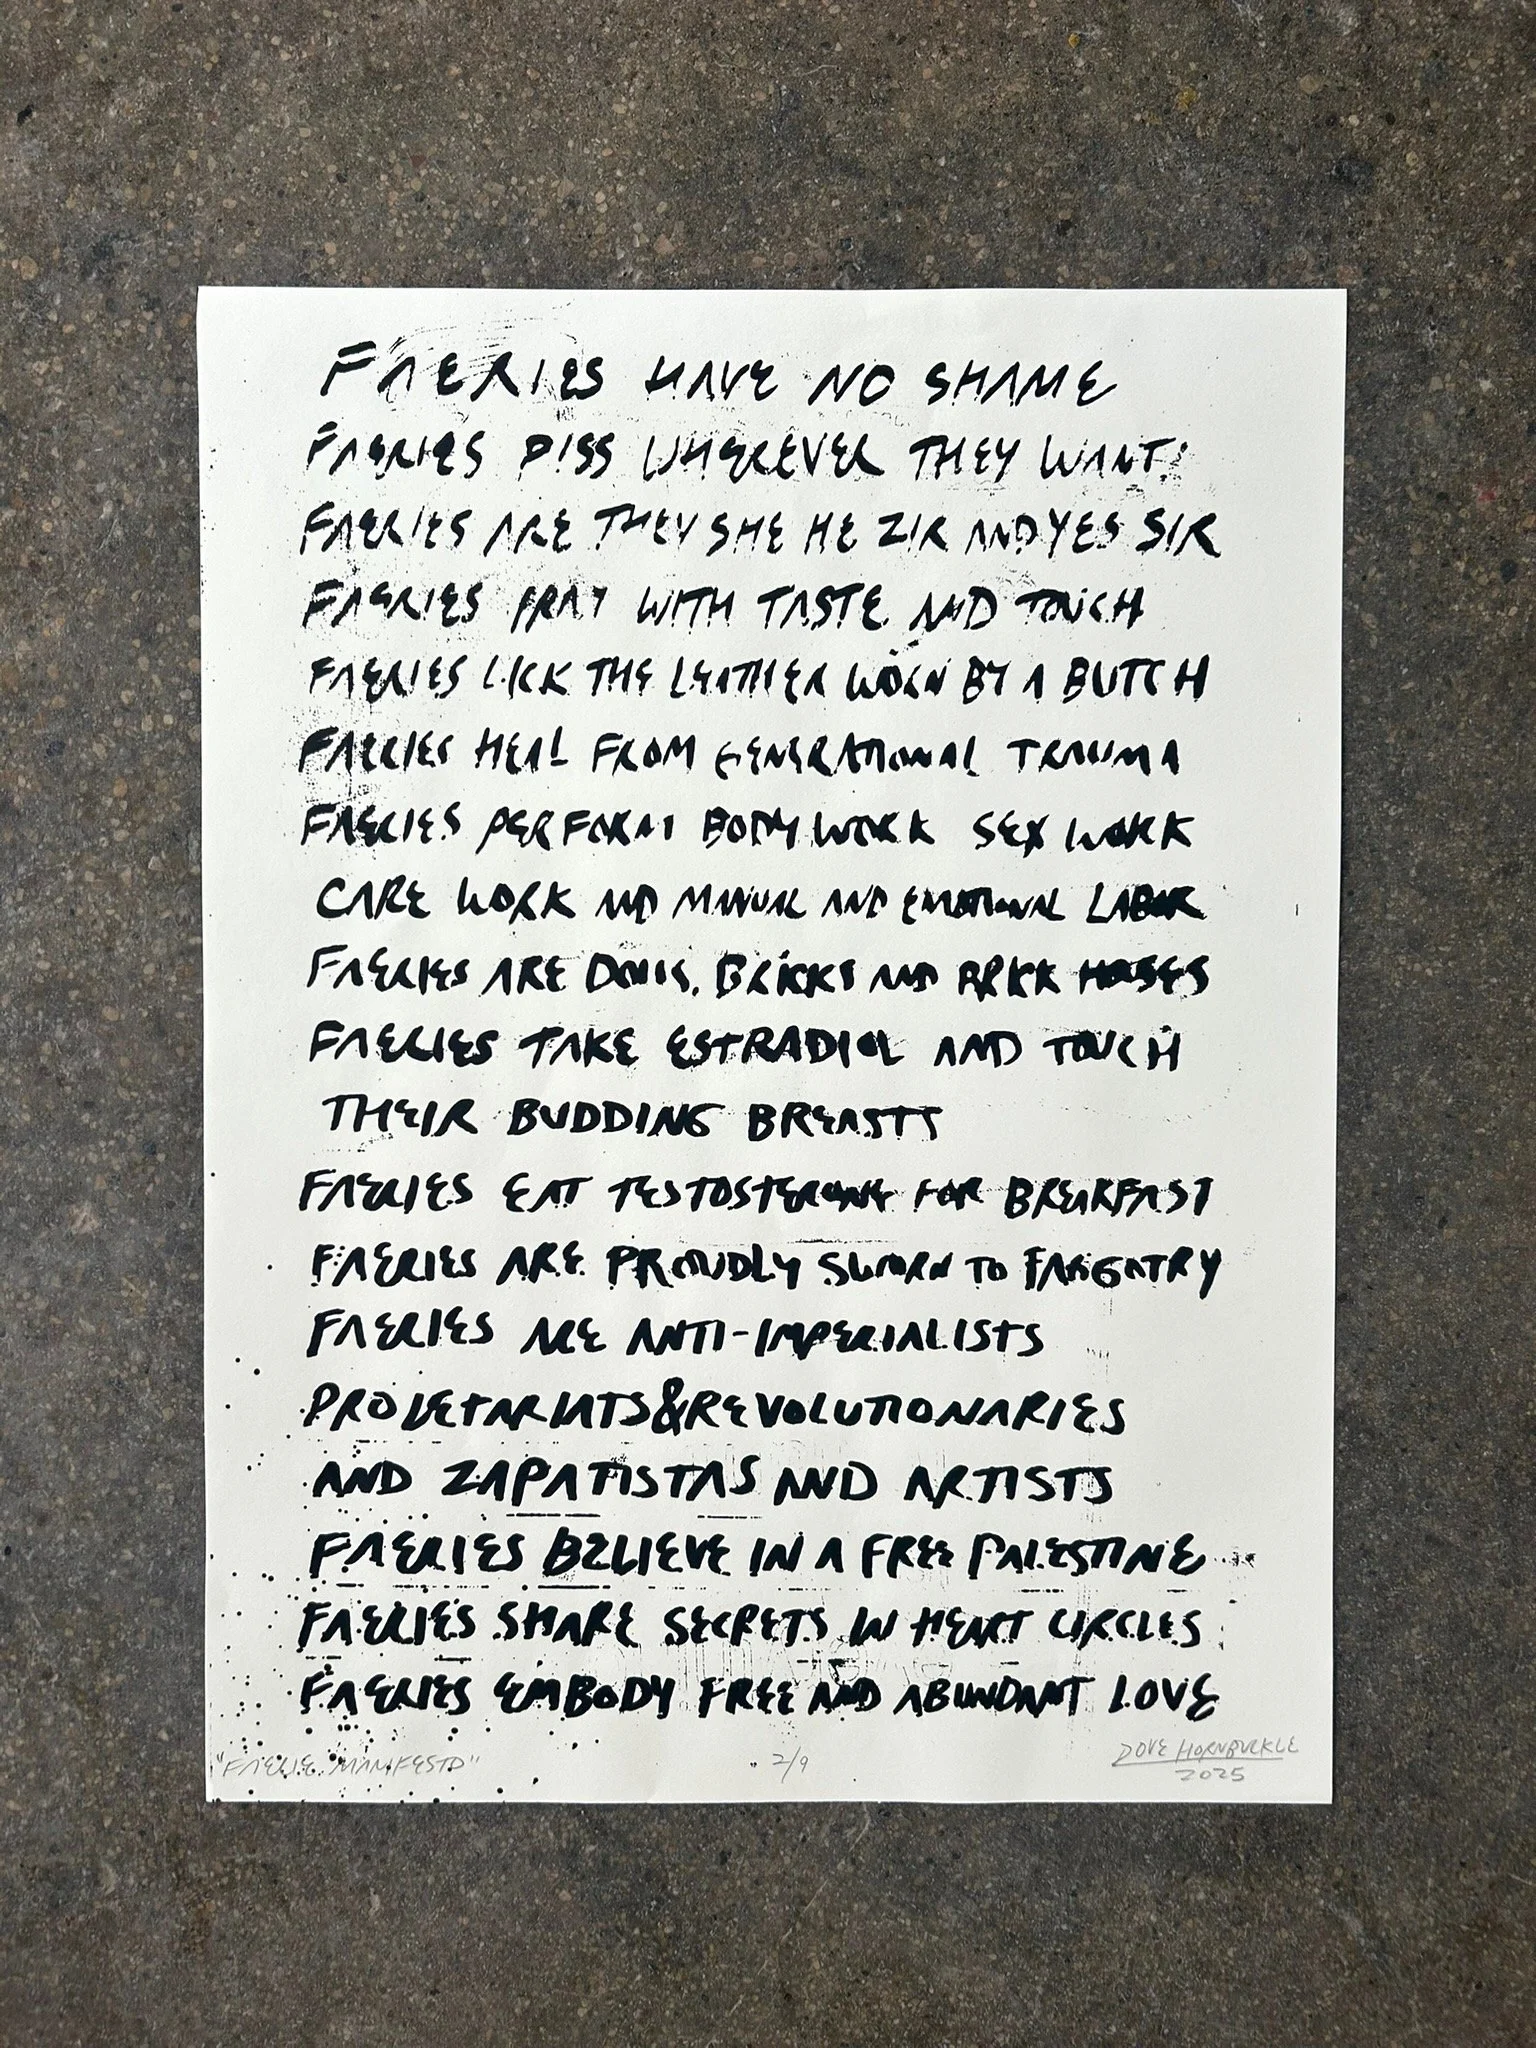 FAERIES HAVE NO SHAME
FAERIES PISS WHEREVER THEY WANT!
FAERIES ARE THEY SHE HE ZIR AND YES SIR
FAERIES PRAY WITH TASTE AND TOUCH
FAERIES LICK THE LEATHER WORN BY A BUTCH
FAERIES HEAL FROM GENERATIONAL TRAUMA
FAERIES PERFORM BODY WORK SEX WORK
CARE WORK AND MANUAL AND EMOTIONAL LABOR
FAERIES ARE DOLLS, BRICKS AND BRICK HOUSES
FAERIES TAKE ESTRADIOL AND TOUCH
THEIR BUDDING BREASTS
FAERIES EAT TESTOSTERONE FOR BREAKFAST
FAERIES ARE PROUDLY SWORN TO FAGGOTRY
FAERIES ARE ANTI-IMPERIALISTS
PROLETARIATS & REVOLUTIONARIES
AND ZAPATISTAS AND ARTISTS
FAERIES BELIEVE IN A FREE PALESTINE
FAERIES SHARE SECRETS IN HEART CIRCLES
FAERIES EMBODY FREE AND ABUNDANT LOVE
"FAERIE MANIFESTO" 2/9 DOVE HORNBUCKLE
2025